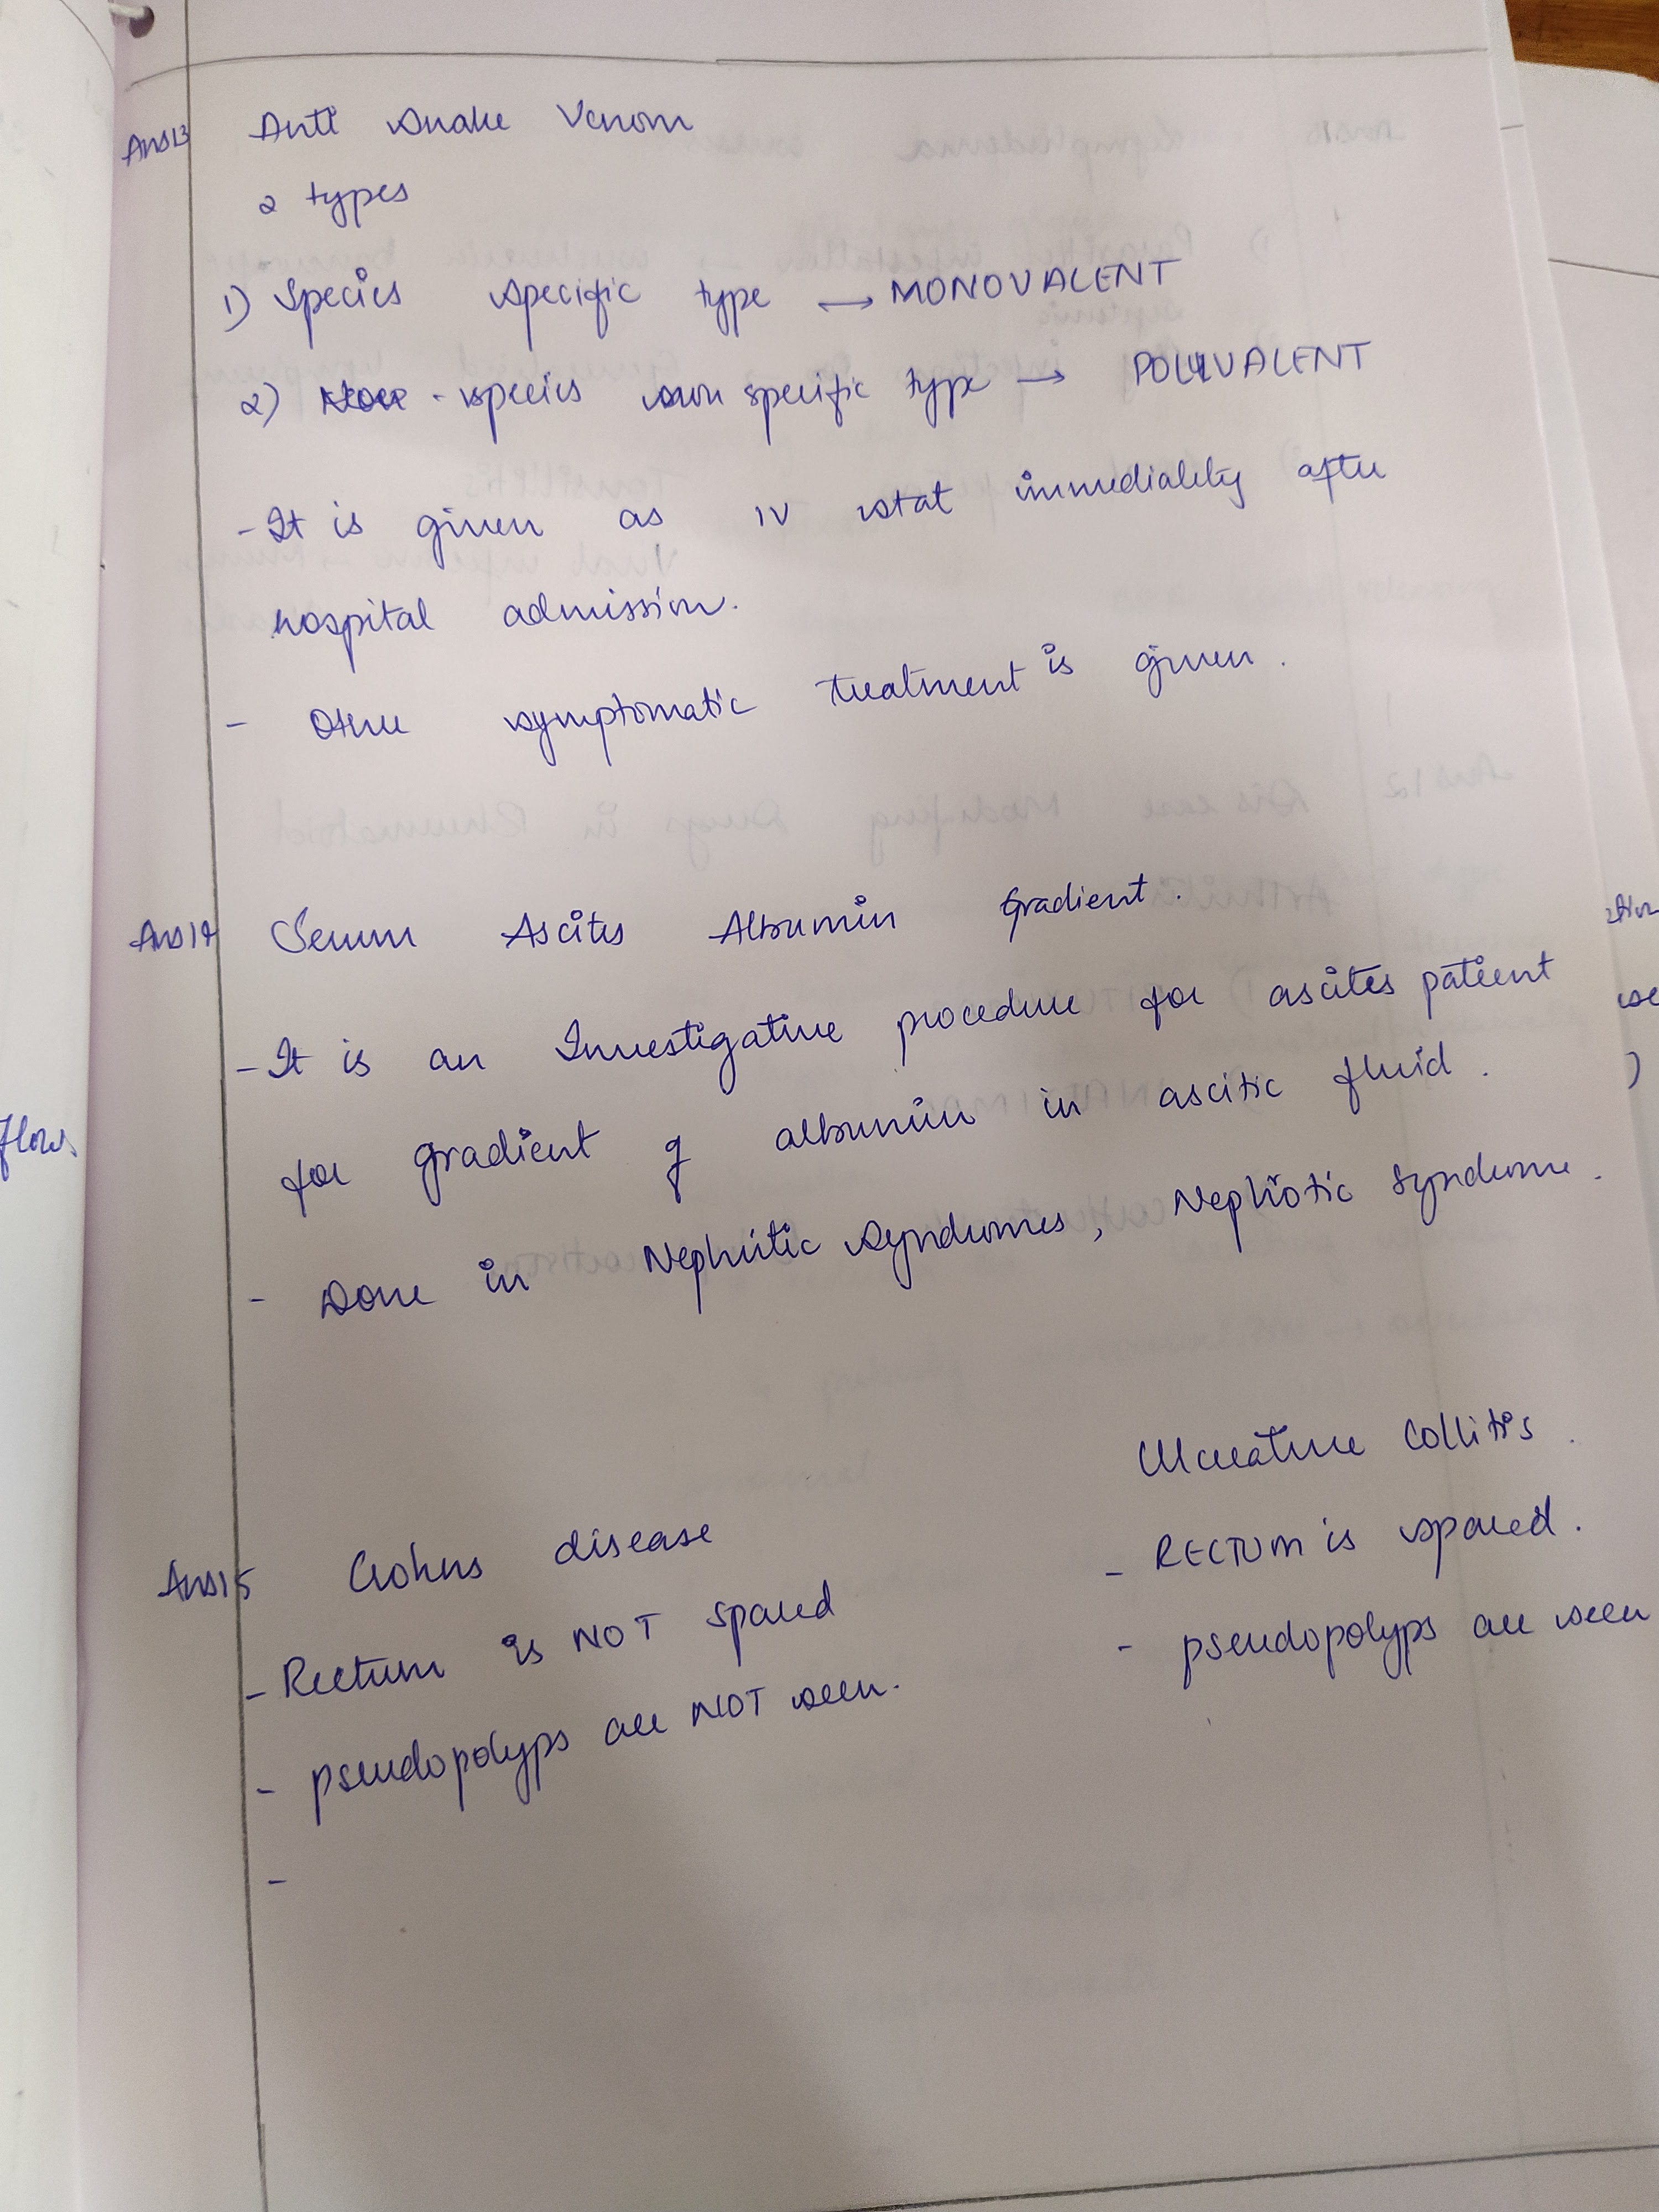 Ans13 Anti Snake Venom
2 types
1) Species specific type → MONOVALENT
2) - species non specific type → POLYVALENT
- It is given as IV stat immediality after
hospital admission.
- Other symptomatic treatment is given.
Ans14 Serum Ascites Albumin Gradient.
- It is an Investigative procedure for ascites patient
for gradient of albumin in ascitic fluid.
- Done in Nephritic Syndromes, Nephrotic Syndrome.
flows
Ans15 Crohns disease
Ulcerative Collitis.
- Rectum is NOT spared
- RECTUM is spared.
- pseudopolyps are NOT seen.
- pseudopolyps are seen
-